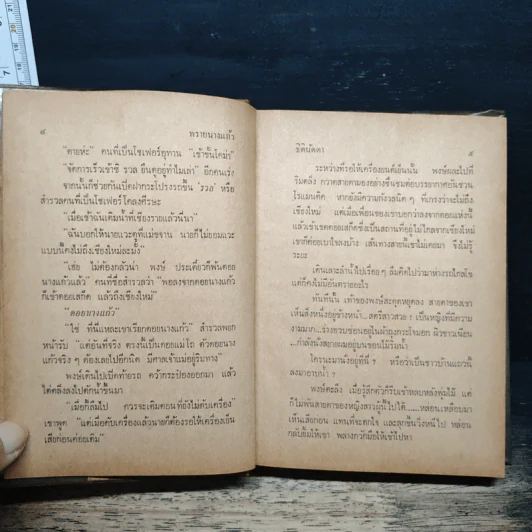 ๔ พรายนางแก้ว
"ตายห่ะ" คนที่เป็นโชเฟอร์อุทาน "เข้าขั้นโคม่า"
"จัดการเร็วเข้าซิ รวล ยืนดูอยู่ทำไมเล่า" อีกคนเร่ง
จากนั้นก็ช่วยกันเปิดฝากระโปรงรถขึ้น 'รวล' หรือ
สำรวลคนที่เป็นโชเฟอร์โคลงศีรษะ
"เมื่อเช้าฉันเติมน้ำที่เชียงรายแล้วนี่นา"
"ฉันบอกให้นายแวะดูที่แม่ขจาน นายก็ไม่ยอมแวะ
แบบนี้คงไม่ถึงเชียงใหม่ละมั้ง"
"เฮ่ย ไม่ต้องกลัวน่า พงษ์ ประเดี๋ยวก็พ้นดอย
นางแก้วแล้ว" คนที่ชื่อสำรวลว่า "พอลงจากดอยนางแก้ว
ก็เข้าดอยสะเก็ด แล้วถึงเชียงใหม่"
"ดอยนางแก้ว"
"ใช่ ที่นี่แหละเขาเรียกดอยนางแก้ว" สำรวลพยัก
หน้ารับ "แต่อันที่จริง ตรงนี้เป็นดอยแม่โถ ตัวดอยนาง
แก้วจริง ๆ ต้องเลยไปอีกนิด มีศาลเจ้าแม่อยู่ริมทาง"
พงษ์เดินไปเปิดท้ายรถ คว้ากระป๋องออกมา แล้ว
ไต่ตลิ่งลงไปตักน้ำขึ้นมา
"เมื่อกี้ลืมไป ควรจะเติมตอนที่ยังไม่ดับเครื่อง"
เขาพูด "แต่เมื่อดับเครื่องแล้วนายก็ต้องรอให้เครื่องเย็น
เสียก่อนค่อยเติม"
จินตนัดดา ๕
ระหว่างที่รอให้เครื่องยนต์เย็นนั้น พงษ์ผละไปที่
ริมตลิ่ง กวาดสายตามองอย่างชื่นชมต่อบรรยากาศอันชวน
โรแมนติค หากยังมีความกังวลนิด ๆ ที่เกรงว่าจะไม่ถึง
เชียงใหม่ แต่เมื่อเพื่อนของเขาบอกว่าลงจากดอยแห่งนี้
แล้วเข้าเขตดอยสะเก็ดซึ่งเป็นสถานที่อยู่ไม่ไกลจากเชียงใหม่
เขาก็ค่อยเบาใจลงบ้าง เส้นทางสายนี้เขาไม่เคยมา จึงไม่รู้
ระยะ
เดินเลาะลำน้ำไปเรื่อย ๆ ลืมคิดไปว่ามาห่างรถไกลโข
แต่ก็คงไม่มีอันตรายอะไร
ทันทีนั้น เท้าของพงษ์สะดุดหยุดลง สายตาของเขา
เห็นสิ่งหนึ่งอยู่ข้างหน้า...สตรีสาวสวย ! เป็นหญิงที่มีความ
งามมาก...ร่างอวบซ่อนอยู่ในผ้าถุงกระโจมอก ผิวขาวเนียน
...กำลังนั่งสยายผมอยู่บนขอนไม้ริมน้ำ
ใครนะมานั่งอยู่ที่นี่ ? หรือว่าเป็นชาวบ้านแถวนี้
ลงมาอาบน้ำ ?
พงษ์ตะลึง เมื่อรู้สึกตัวก็รีบเข้าหลบหลังพุ่มไม้ แต่
ก็ไม่พ้นสายตาของหญิงสาวผู้นี้ไปได้......หล่อนเหลือบมา
เห็นเสียก่อน แทนที่จะตกใจ และลุกขึ้นวิ่งหนีไป หล่อน
กลับยิ้มให้เขา พลางกวักมือให้เข้าไปหา